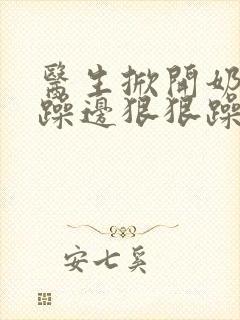 醫生掀開奶
躁邊狠狠躁
安七奚